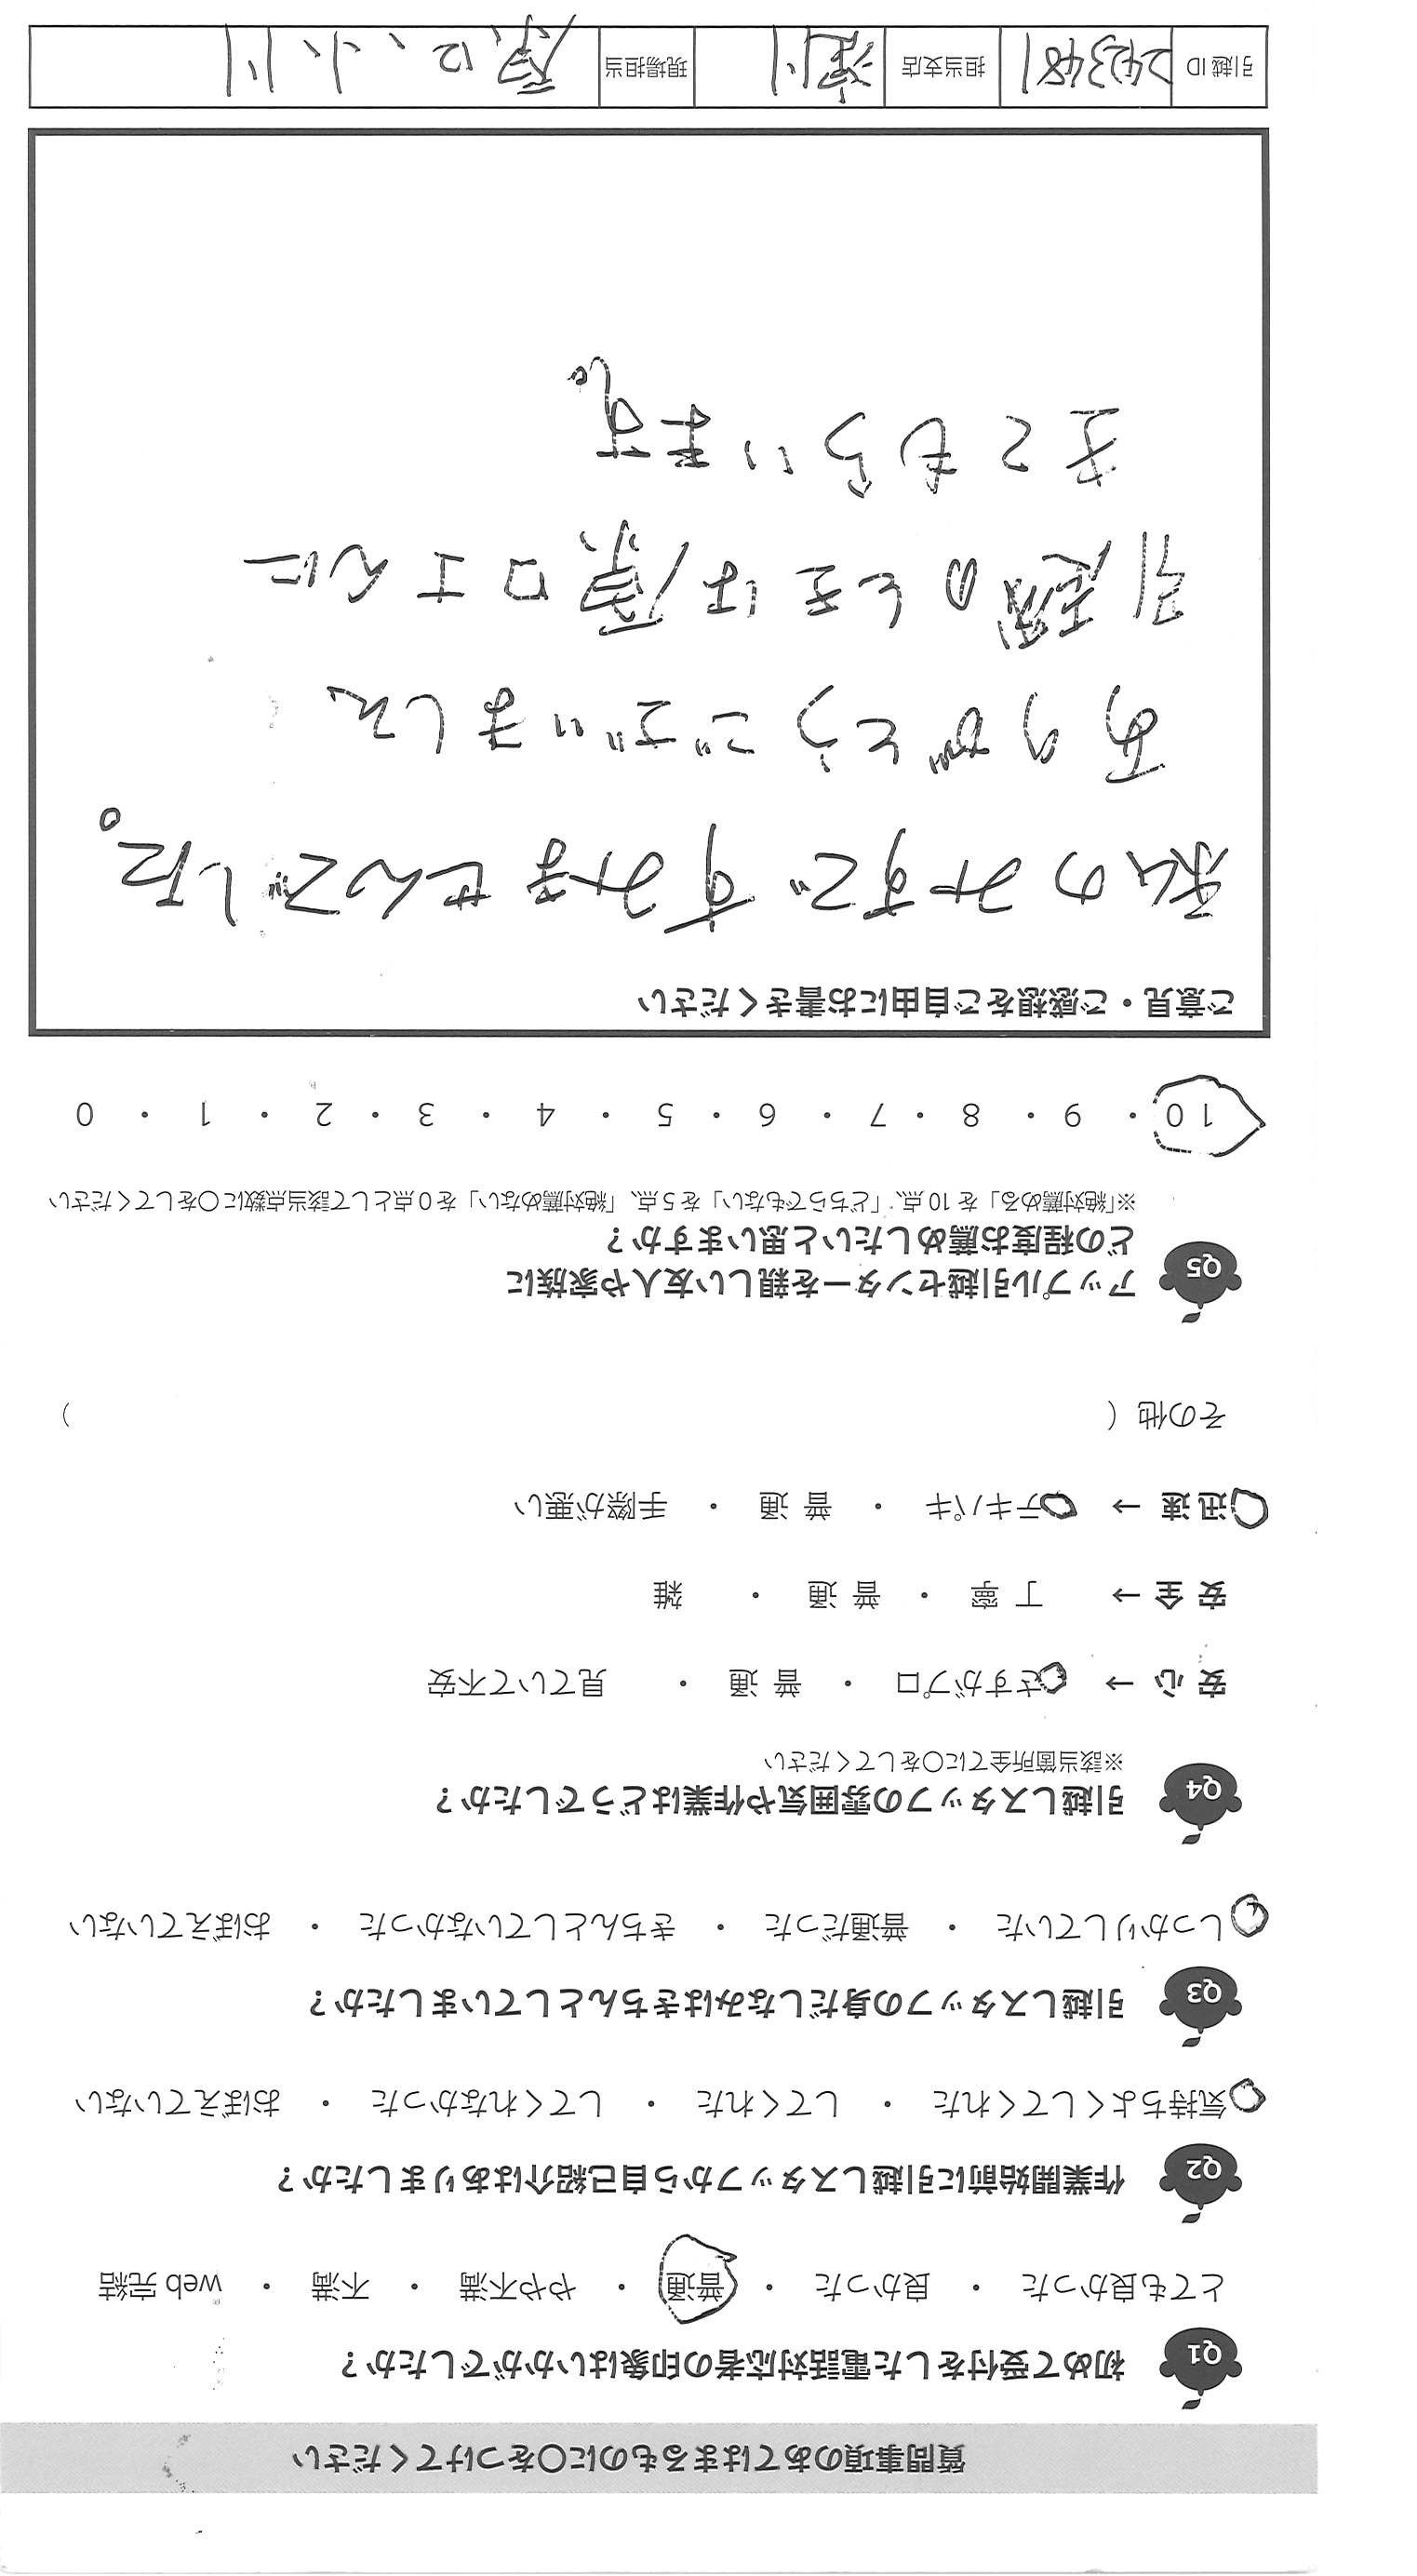 質問事項のあてはまるものに〇をつけてください
Q1 初めて受付をした電話対応者の印象はいかがでしたか？
とても良かった ・ 良かった ・ 普通 ・ やや不満 ・ 不満 ・ web 完結
Q2 作業開始前に引越しスタッフから自己紹介はありましたか？
気持ちよくしてくれた ・ してくれた ・ してくれなかった ・ おぼえていない
Q3 引越しスタッフの身だしなみはきちんとしていましたか？
しっかりしていた ・ 普通だった ・ きちんとしていなかった ・ おぼえていない
Q4 引越しスタッフの雰囲気や作業はどうでしたか？
※該当箇所全てに〇をしてください
安心 → さすがプロ ・ 普通 ・ 見ていて不安
安全 → 丁寧 ・ 普通 ・ 雑
迅速 → テキパキ ・ 普通 ・ 手際が悪い
その他（ ）
Q5 アップル引越センターを親しい友人や家族に
どの程度お薦めしたいと思いますか？
※「絶対薦める」を 10 点、「どちらでもない」を 5 点、「絶対薦めない」を 0 点として該当点数に〇をしてください
10 ・ 9 ・ 8 ・ 7 ・ 6 ・ 5 ・ 4 ・ 3 ・ 2 ・ 1 ・ 0
ご意見・ご感想をご自由にお書きください
私のみすで すみませんでした。
ありがとうございました
引越のときは原口さんに
きてもらいます。
引越 ID 2423481 担当支店 滝川 現場担当 原口、小川